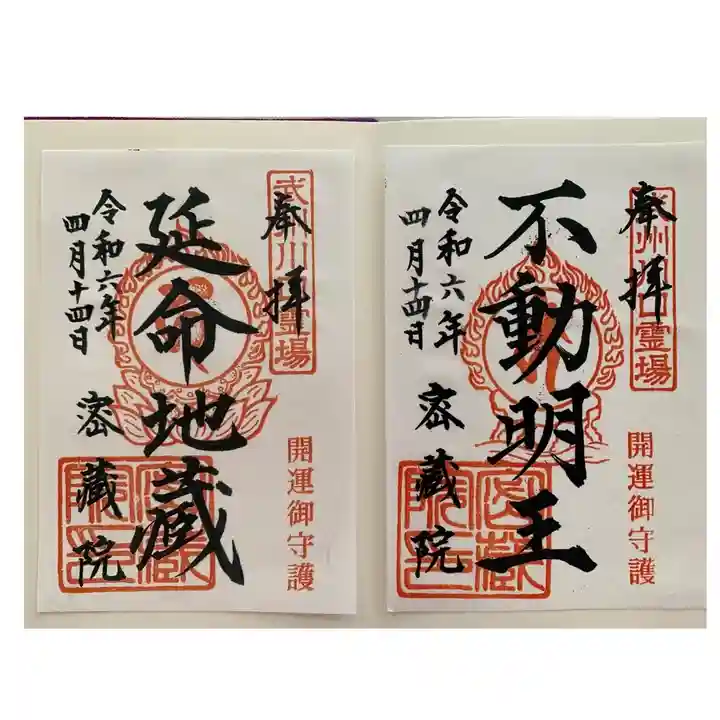 奉拝
開運御守護
不動明王
令和六年
四月十四日
密蔵院
奉拝
開運御守護
延命地蔵
令和六年
四月十四日
密蔵院